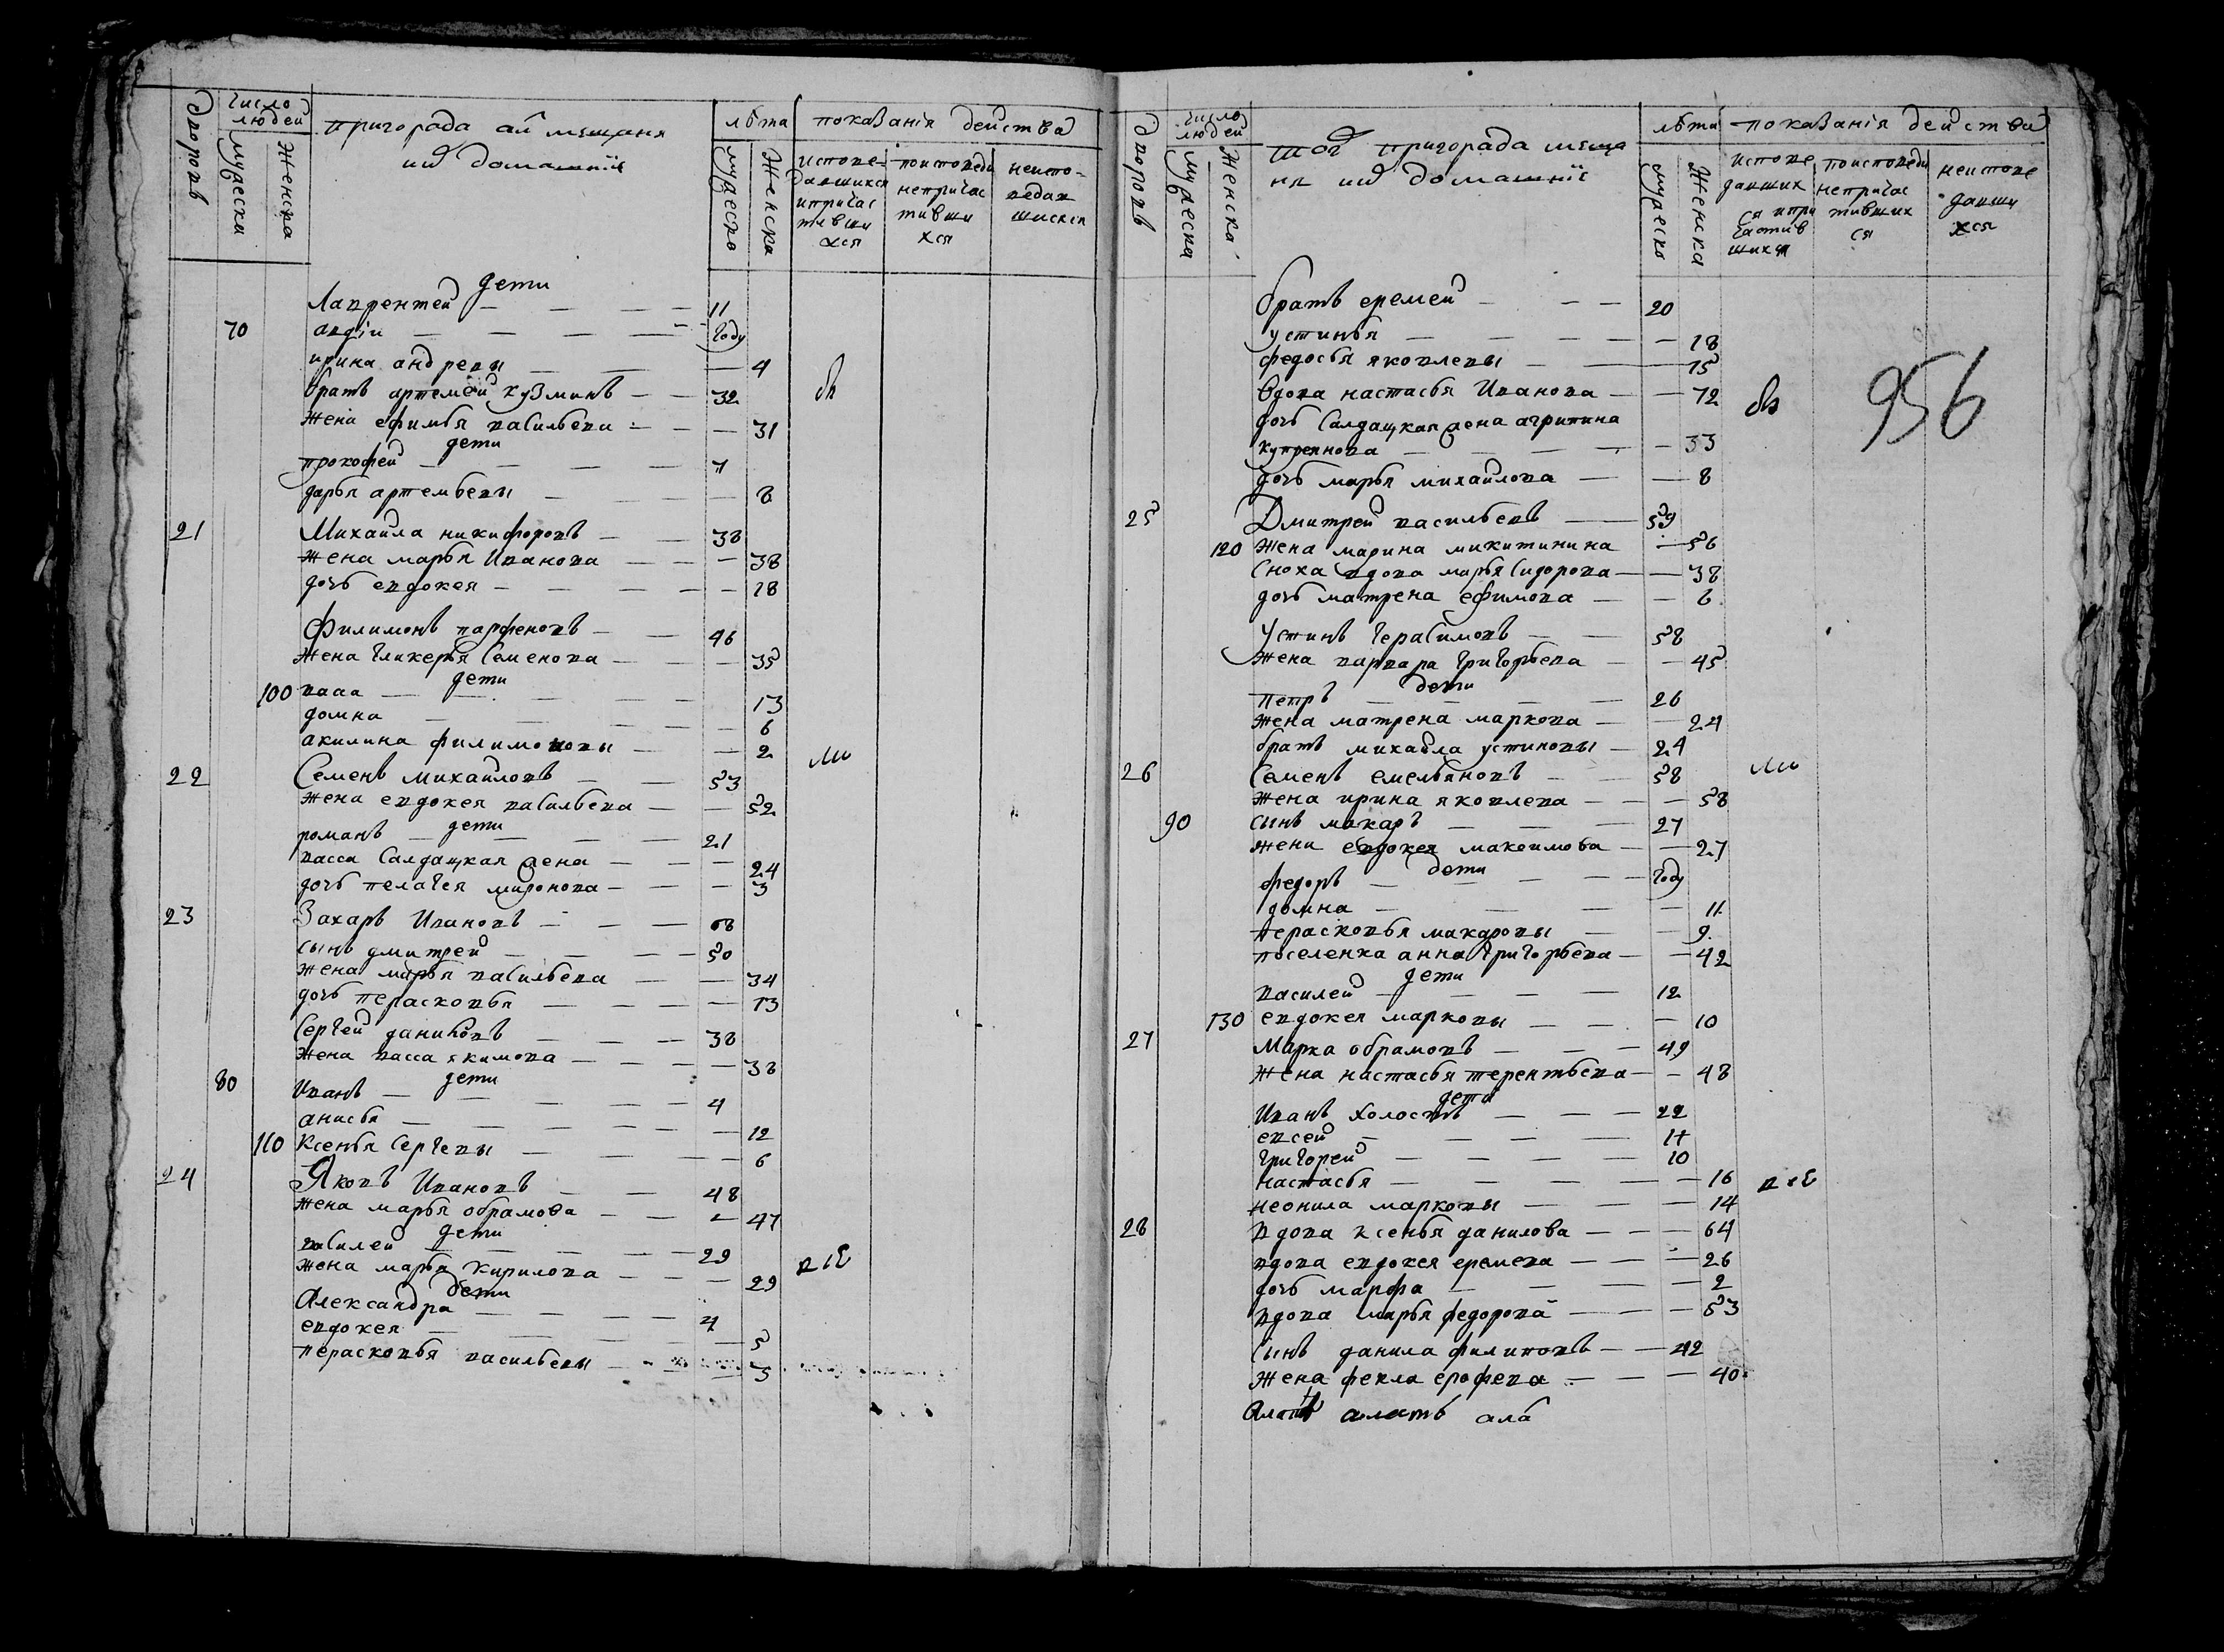 дворовъ
число людей
мужеска
женска
пригорода ал мещаня
их домашніе
лѣта
мужеско
женска
показанія действа
исповедавшихся и причастившихся
по исповеди непричастившихся
неисповедавшихся
дети
Лаврентей — 11
70 авдіи — году
ирина андревы — 4
братъ артемей кузминъ — 32
жена ефимья васильева — 31
дети
прокофей — 7
дарья артемьевы — 8
21 Михаила никифоровъ — 38
жена марья Иванова — 38
дочь евдокея — 18
Филимонъ парфеновъ — 46
жена гликерья Семенова — 35
дети
100 — 13
домна — 6
акилина филимоновы — 2
22 Семенъ михайловъ — 53
жена евдокея васильева — 52
дети
романъ — 21
васса салдацкая жена — 24
дочь пелагея миронова — 3
23 Захаръ Ивановъ — 68
сынъ дмитрей — 50
жена марья васильева — 34
дочь перасковья — 13
Сергей даниловъ — 38
жена васса якимова — 38
дети
80 Иванъ — 4
анисья — 12
110 Ксенья Сергевы — 6
24 Яковъ Ивановъ — 48
жена марья обрамова — 47
дети
василей — 29
жена марья кирилова — 29
дети
Александра — 4
евдокея — 5
перасковья васильевы — 3
дворовъ
число людей
мужеска
женска
тогѡ пригорада меща
ня их домашніе
лѣта
мужеско
женска
показанія действа
исповедавшихся и причастившихся
по исповеди непричастившихся
неисповедавшихся
956
братъ еремей — 20
устинья — 18
федосья яковлевы — 15
вдова настасья Иванова — 72
дочь Салдацкая жена агрипина
купреянова — 33
дочь марья михайлова — 8
25 Дмитрей васильевъ — 59
120 жена марина микитинина — 56
сноха вдова марья Сидорова — 38
дочь матрена ефимова — 6
Устинъ герасимовъ — 58
жена варвара григорьева — 45
дети
петръ — 26
жена матрена маркова — 24
братъ михайла устиновы — 24
26 Семенъ емельяновъ — 58
жена ирина яковлева — 58
90 сынъ макаръ — 27
жена евдокея максимова — 27
дети
федоръ — году
домна — 11
перасковья макаровы — 9
поселенка анна григорьева — 42
дети
василей — 12
130 евдокея марковы — 10
27 Марка обрамовъ — 49
жена настасья терентьева — 48
дети
Иванъ холостъ — 22
евсей — 17
григорей — 10
настасья — 16
неонила марковы — 14
28 вдова ксенья данилова — 64
вдова евдокея еремева — 26
дочь марфа — 2
вдова марья федорова — 53
сынъ данила филиповъ — 42
жена фекла ерофева — 40